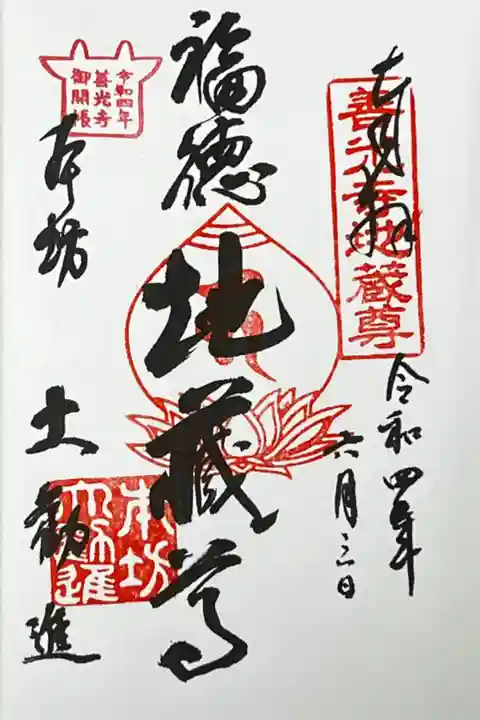 奉拝
善光寺地蔵尊
令和四年
六月三日
福徳
地蔵尊
令和四年
善光寺
御開帳
本坊
大勧進
本坊
大勧進